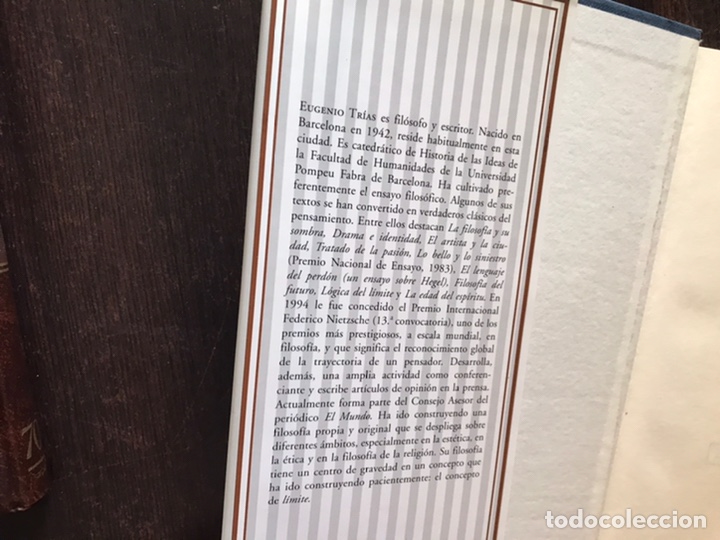 EUGENIO TRÍAS es filósofo y escritor. Nacido en
Barcelona en 1942, reside habitualmente en esta
ciudad. Es catedrático de Historia de las Ideas de
la Facultad de Humanidades de la Universidad
Pompeu Fabra de Barcelona. Ha cultivado pre-
ferentemente el ensayo filosófico. Algunos de sus
textos se han convertido en verdaderos clásicos del
pensamiento. Entre ellos destacan La filosofía y su
sombra, Drama e identidad, El artista y la ciu-
dad, Tratado de la pasión, Lo bello y lo siniestro
(Premio Nacional de Ensayo, 1983), El lenguaje
del perdón (un ensayo sobre Hegel), Filosofía del
futuro, Lógica del límite y La edad del espíritu. En
1994 le fue concedido el Premio Internacional
Federico Nietzsche (13.ª convocatoria), uno de los
premios más prestigiosos, a escala mundial, en
filosofía, y que significa el reconocimiento global
de la trayectoria de un pensador. Desarrolla,
además, una amplia actividad como conferen-
ciante y escribe artículos de opinión en la prensa.
Actualmente forma parte del Consejo Asesor del
periódico El Mundo. Ha ido construyendo una
filosofía propia y original que se despliega sobre
diferentes ámbitos, especialmente en la estética, en
la ética y en la filosofía de la religión. Su filosofía
tiene un centro de gravedad en un concepto que
ha ido construyendo pacientemente: el concepto
de límite.
todocoleccion